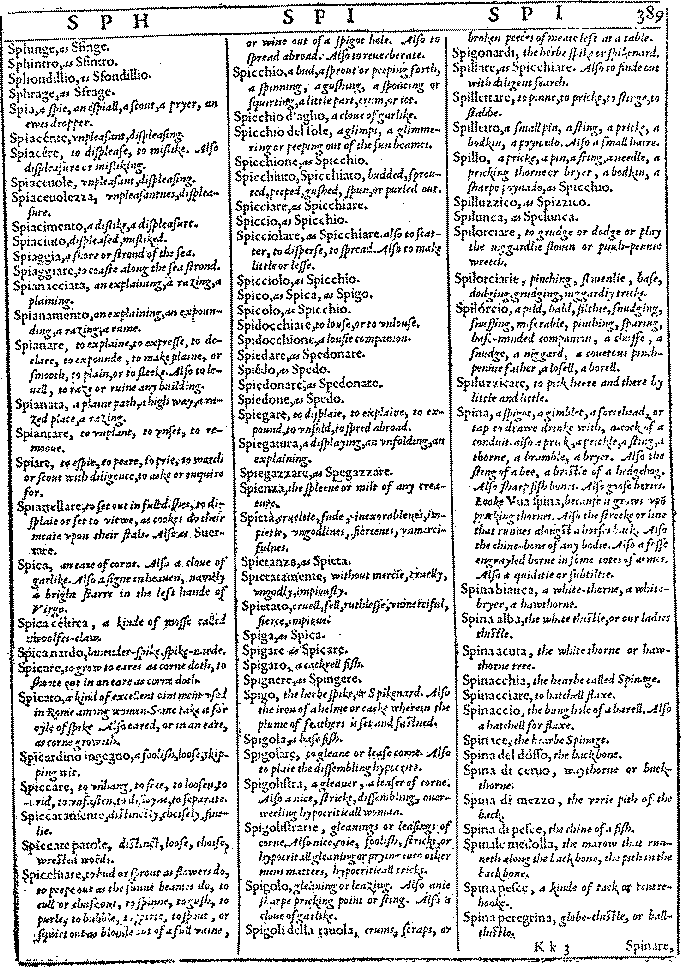 S P H S F I S P I 389
Splunge, as Sfinge.
Sphintro, as Sfintro.
Spliondillio, as Sfondillio.
Sphrage, as Sfrage.
Spia, a spie, an espiall, a scout, a pryer, an
eves dropper.
Spiacénte, vnpleasant, displeasing.
Spiacére, to displease, to mislike. Also
displeasure or misliking.
Spiaceuole, vnpleasant, displeasing.
Spiaceuolezza, vnpleasantnes, displea-
sure.
Spiacimento, a dislike, a displeasure.
Spiaciuto, displeased, misliked.
Spiaggia, a shore or strond of the sea.
Spiaggiare, to coaste along the sea strond.
Spianacciata, an explaining, a razing, a
plaining.
Spianamento, an explaining, an expoun-
ding, a razing, a ruine.
Spianare, to explaine, to expresse, to de-
clare, to expounde, to make plaine, or
smooth, to plain, or to sleeke. Also to le-
uell, to raze or ruine any building.
Spianata, a plaine path, a high way, a ra-
zed place, a razing.
Spiantare, to vnplant, to vnset, to re-
moue.
Spiare, to espie, to peare, to prie, to watch
or scout with diligence, to aske or enquire
for.
Spiattellare, to set out in full dishes, to dis-
plaie or set to viewe, as cookes do their
meate vpon their stals. Also as Suer-
tare.
Spica, an eare of corne. Also a cloue of
garlike. Also a signe in heauen, namely
a bright starre in the left hande of
Virgo.
Spica céltica, a kinde of mosse called
woolfes-claw.
Spicanardo, lauender-spike, spike-narde.
Spicare, to grow to eares as corne doth, to
shoote out in an eare as corne doth.
Spicato, a kind of excellent ointment vsed
in Rome among women. Some take it for
oyle of spike. Also eared, or in an eare,
as corne groweth.
Spiccardino ingegno, a foolish, loose, skip-
ping wit.
Spiccare, to vnhang, to free, to loosen, to
rid, to vnfasten, to disioyne, to separate.
Spiccatamente, distinctly, choisely, fine-
lie.
Spiccate parole, distinct, loose, choise,
wrested words.
Spicchiare, to bud or sprout as flowers do,
to peepe out as the sunne beames do, to
cull or chuse out, to spinne, to gush, to
purle, to bubble, to spout, or
squirt out as bloud out of a full vaine,
or wine out of a spigot hole. Also to
spread abroad. Also to reuerberate.
Spicchio, a bud, a sprout or peeping forth,
a spinning, a gushing, a spouting or
squirting, a little part, crum, or ice.
Spicchio d'aglio, a cloue of garlike.
Spicchio del sole, a glimps, a glimme-
ring or peeping out of the sun beames.
Spicchione, as Spicchio.
Spicchiuto, Spicchiato, budded, sprou-
ted, peeped, gushed, spun, or purled out.
Spicciare, as Spicchiare.
Spiccio, as Spicchio.
Spicciolare, as Spicchiare. also to scat-
ter, to disperse, to spread. Also to make
little or lesse.
Spicciolo, as Spicchio.
Spico, as Spica, as Spigo.
Spicolo, as Spicchio.
Spidocchiare, to louse, or to vnlouse.
Spidocchione, a lousie companion.
Spiedare, as Spedonare.
Spiédo, as Spedo.
Spiedonare, as Spedonato.
Spiedone, as Spedo.
Spiegare, to displaie, to explaine, to ex-
pound, to vnfold, to spred abroad.
Spiegatura, a displaying, an vnfolding, an
explaining.
Spiegazzare, as Spegazzare.
Spienza, the spleene or milt of any crea-
ture.
Spietà, crueltie, fude, inexorablenes, im-
pietie, vngodlines, fiercenes, vnmerci-
fulnes.
Spietanza, as Spieta.
Spietatamente, without mercie, cruelly,
vngodly, impiously.
Spietato, cruell, fell, ruthlesse, vnmerciful,
fierce, impious.
Spiga, as Spica.
Spigare as Spicare.
Spigaro, a cackrell fish.
Spignere, as Spingere.
Spigo, the herbe spike, or Spikenard. Also
the iron of a helme or caske wherein the
plume of feathers is set and fastned.
Spigola, a base fish.
Spigolare, to gleane or lease corne. Also
to plaie the dissembling hypocrite.
Spigolistra, a gleauer, a leaser of corne.
Also a nice, stricke, dissembling, ouer-
weeting hypocriticall woman.
Spigolistrarie, gleanings or leasings of
corne. Also nicenie, foolish, strickt, or
hypocriticall gleaning or prying into other
mens matters, hypocriticall tricks.
Spigolo, gleaning or leazing. Also anie
sharpe pricking point or sting. Also a
cloue of garlike.
Spigoli della tauola, crums, scraps, or
broken peeces of meate left at a table.
Spigonardi, the herbe spike or spikenard.
Spillare, as Spicchiare. Also to finde out
with diligent search.
Spillettare, to pinne, to pricke, to stinge, to
stabbe.
Spilletto, a small pin, a sting, a pricke, a
bodkin, a poynado. Also a small haire.
Spillo, a pricke, a pin, a sting, a needle, a
pricking thorne or bryer, a bodkin, a
sharpe poynado, as Spicchio.
Spilluzzico, as Spizzico.
Spilunca, as Spelunca.
Spilorciare, to grudge or dodge or play
the niggardlie slouen or pinch-pennie
wretch.
Spilorciarie, pinching, slouenlie, base,
dodging, grudging, niggardly tricke.
Spilórcio, a pild, bald, filthie, smudging,
snuffing, miserable, pinching, sparing,
base-minded companion, a chuffe, a
smudge, a niggard, a couetous pinch-
penie father, a losell, a borell.
Spiluzzicare, to pick heere and there by
little and little.
Spina, a spigot, a gimblet, a forehead, or
tap to drawe drinke with, a cock of a
conduit. also a prick, a prickle, a sting, a
thorne, a bramble, a bryer. Also the
sting of a bee, a bristle of a hedgehog.
Also sharp fish bones. Also goose beries.
Looke Vua spina, because it growes vpõ
pricking thornes. Also the streeke or line
that runnes alongst a horses back. Also
the chine-bone of any bodie. Also a fesse
engrayled borne in some cotes of armes.
Also a quidditie or subtiltie.
Spina bianca, a white-thorne, a white-
bryer, a hawthorne.
Spina alba, the white thistle, or our ladies
thistle.
Spina acuta, the white thorne or haw-
thorne tree.
Spinacchia, the hearbe called Spinage.
Spinacciare, to hatchell flaxe.
Spinaccio, the bung hole of a barell. Also
a hatchell for flaxe.
Spinace, the hearbe Spinage.
Spina del dosso, the backbone.
Spina di ceruo, waythorne or buck-
thorne.
Spina di mezzo, the verie pith of the
back.
Spina di pesce, the chine of a fish.
Spinale medolla, the marow that run-
neth along the back bone, the pith in the
backbone.
Spina pesce, a kinde of tack or tenter-
hooke.
Spina peregrina, globe-thistle, or ball-
thistle.
K k 3 Spinare,